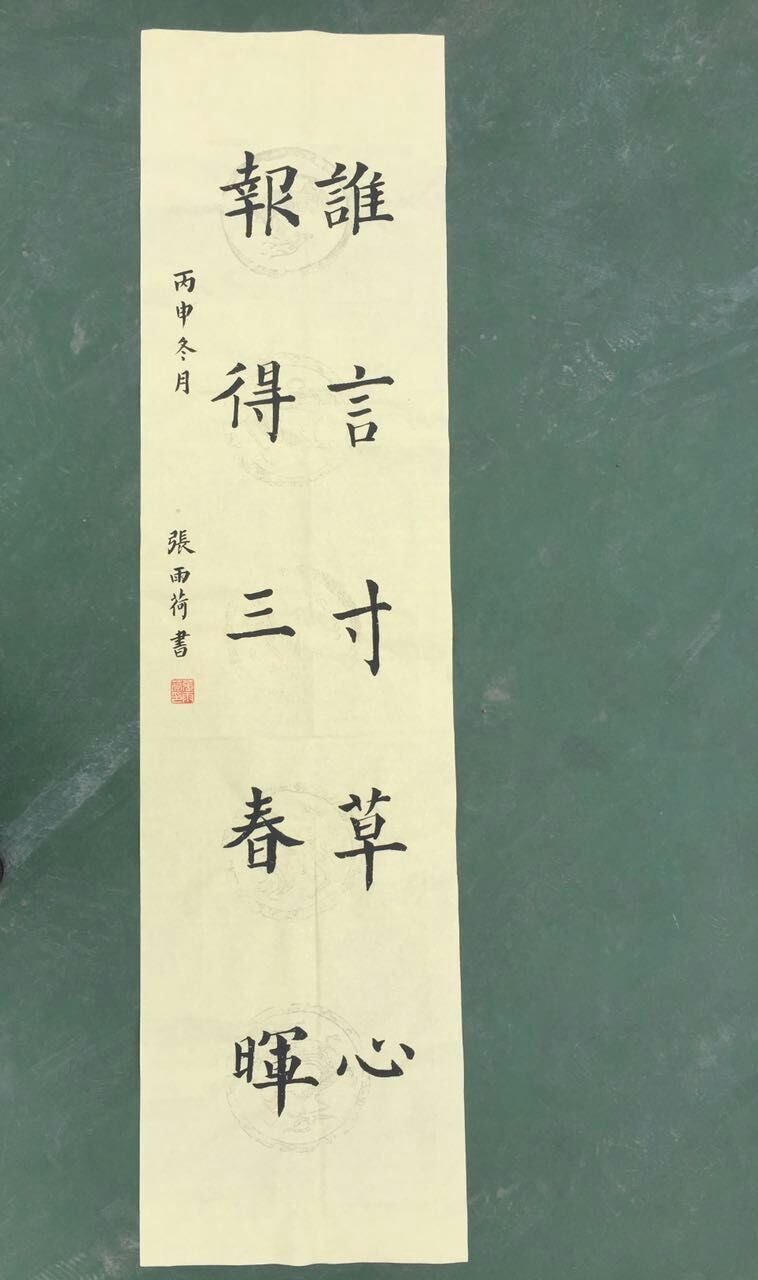 誰言寸草心
報得三春暉
丙申冬月 張雨荷書